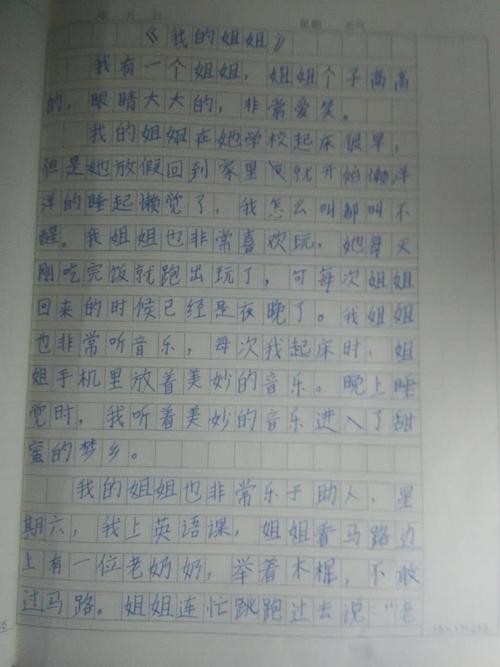 年 月 日 星期 天气
《我的姐姐》
我有一个姐姐，姐姐个子高高
的，眼睛大大的，非常爱笑。
我的姐姐在她学校起床很早，
但是她放假回到家里 就开始懒洋
洋的睡起懒觉了，我怎么叫都叫不
醒。我姐姐也非常喜欢玩，她每天
刚吃完饭就跑出玩了，可每次姐姐
回来的时候已经是夜晚了。我姐姐
也非常听音乐，每次我起床时，姐
姐手机里放着美妙的音乐。晚上睡
觉时，我听着美妙的音乐进入了甜
蜜的梦乡。
我的姐姐也非常乐于助人，星
期六，我上英语课，姐姐看马路边
上有一位老奶奶，举着木棍，不敢
过马路。姐姐连忙跳跑过去说：“老